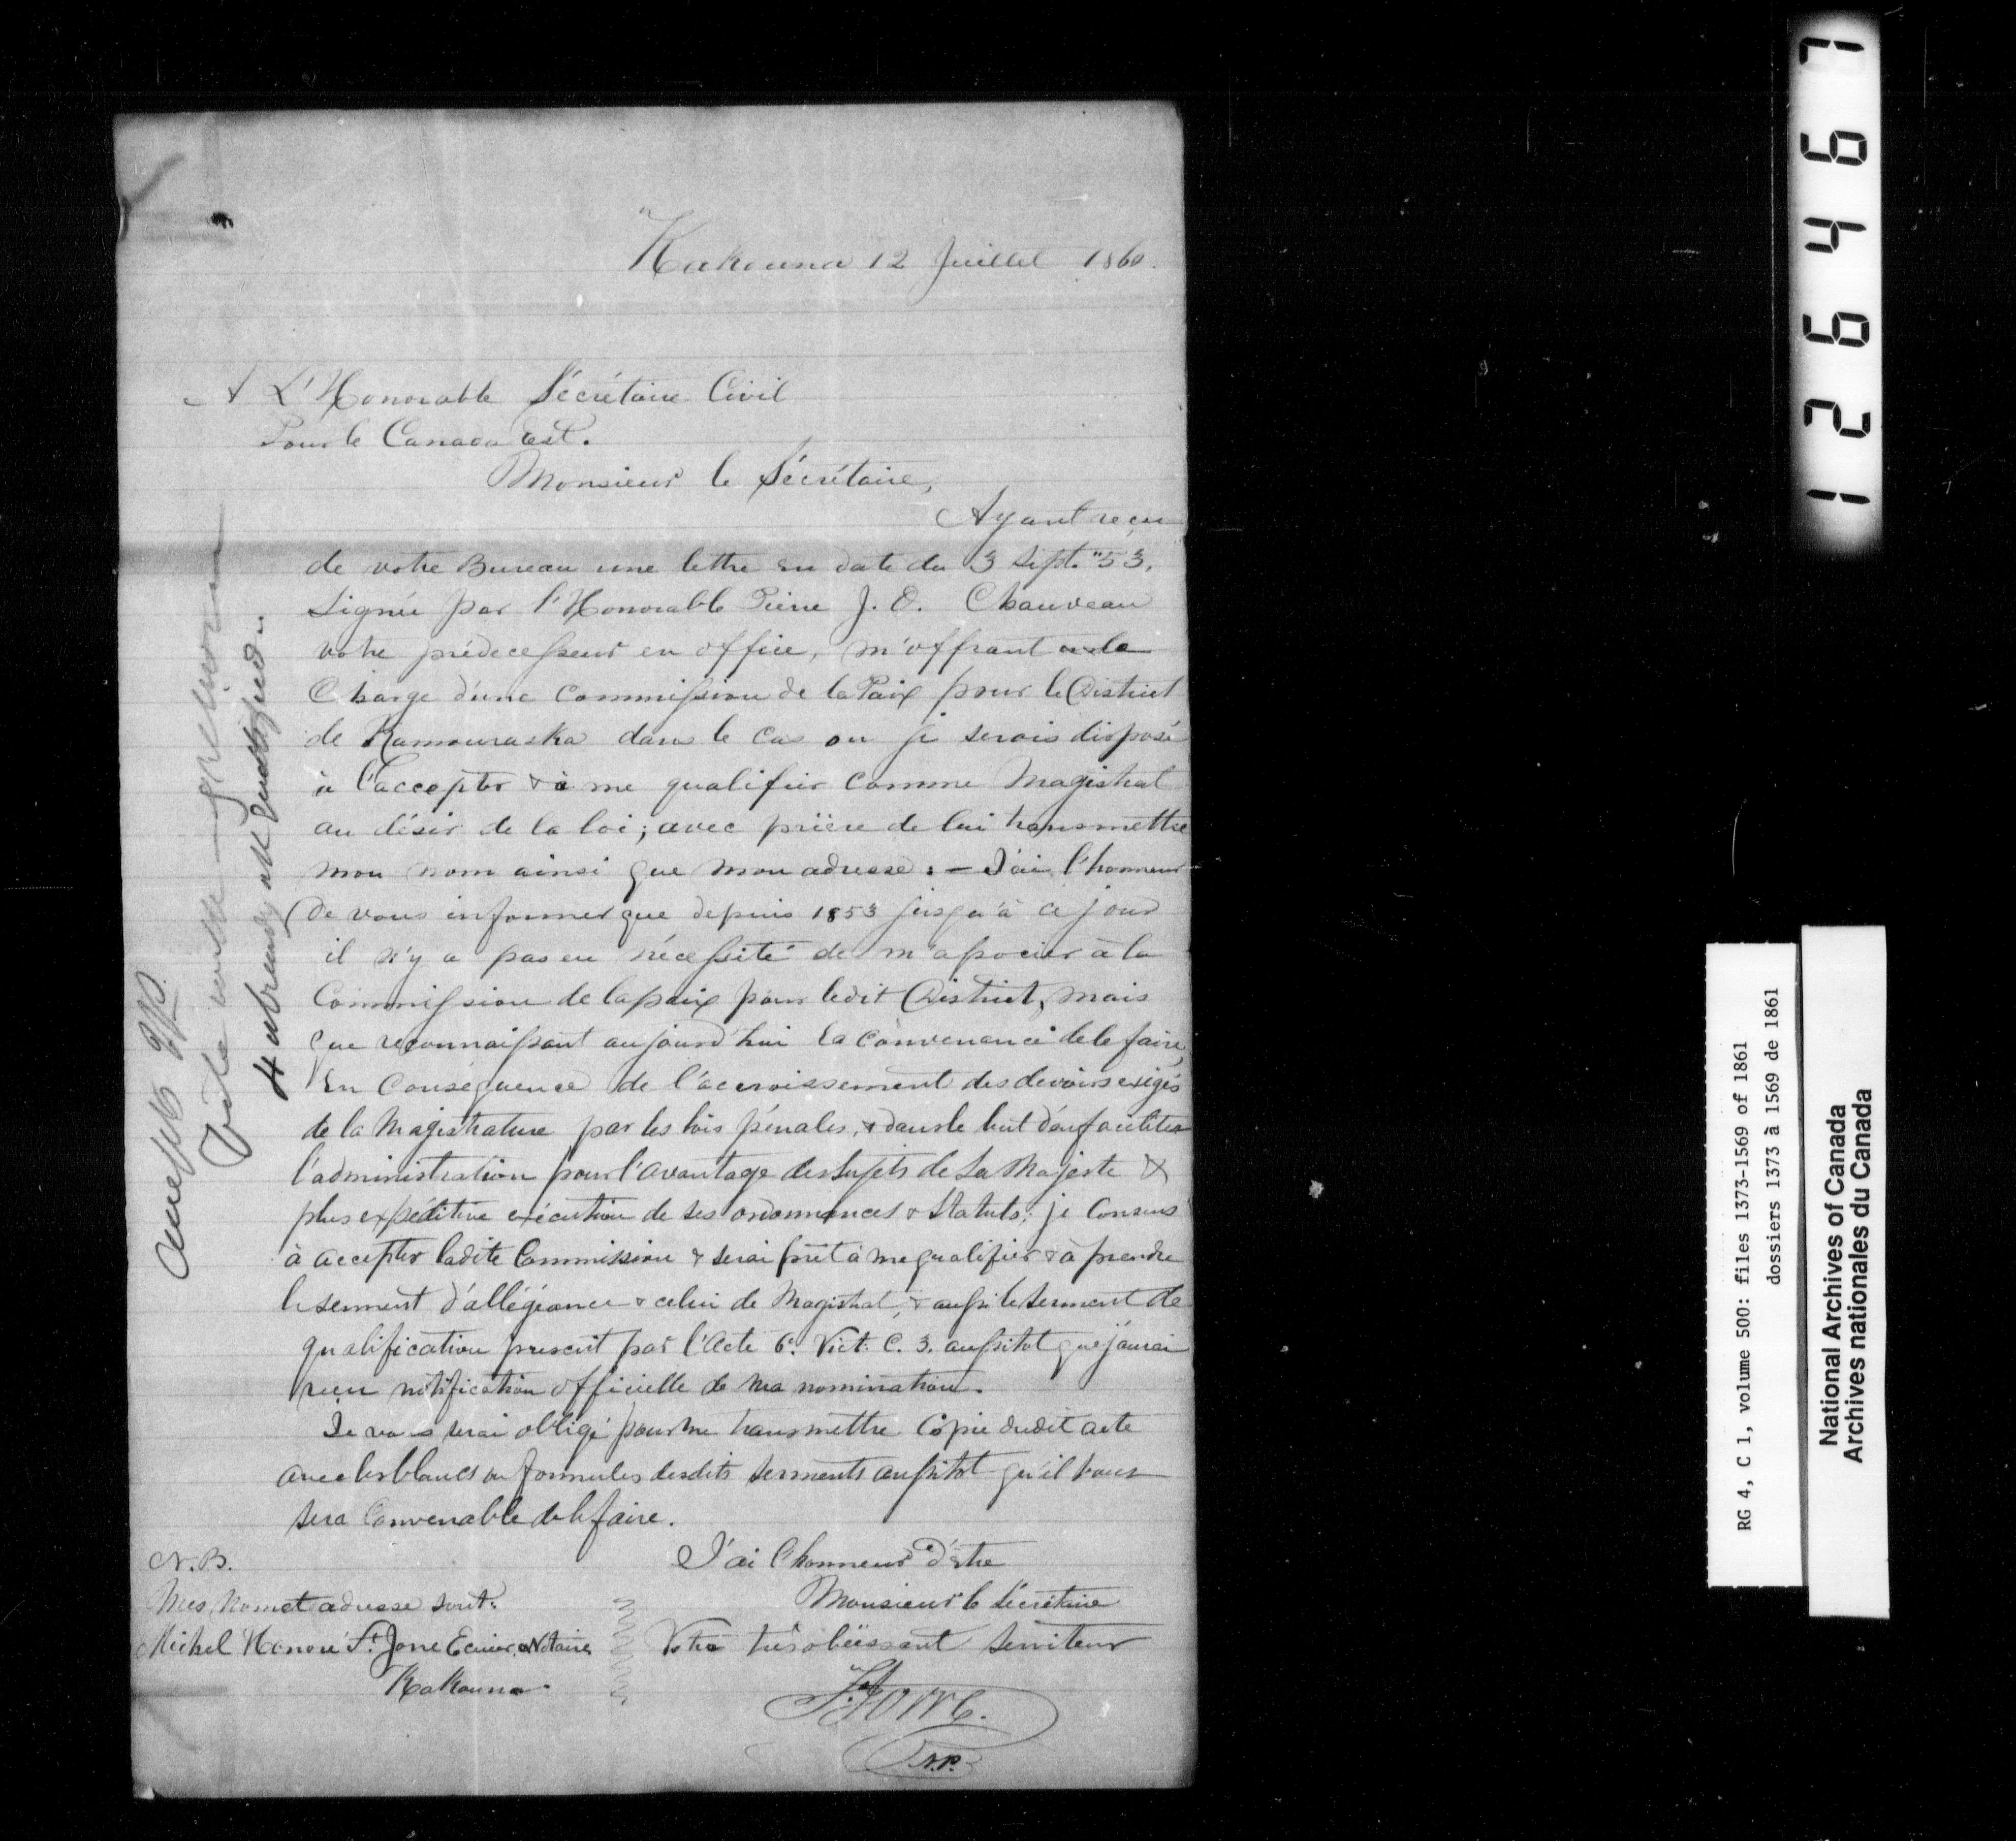 Kakouna 12 Juillet 1860.
A L'Honorable Sécrétaire Civil
Pour le Canada Est.
Monsieur le Sécrétaire,
Ayant reçu
de votre Bureau une lettre en date du 3 Sept. "53,
Signée par l'Honorable Pierre J. O. Chauveau
votre prédecesseur en office, m'offrant la
Charge d'une Commission de la Paix pour le District
de Kamouraska dans le cas ou je serois disposé
à l'accepter & à me qualifier comme Magistrat
au désir de la loi; avec prière de lui transmettre
mon nom ainsi que mon adresse: – J'ai l'honneur
De vous informer que depuis 1853 jusqu'à ce jour
il n'y a pas eu nécessité de m'associer à la
Commission de la paix pour ledit District, mais
que reconnaissant aujourd'hui la convenance de le faire,
En Conséquence de l'accroissement des devoirs exigés
de la Magistrature par les lois pénales, & dans le but d'en faciliter
l'administration pour l'avantage des Sujets de Sa Majeste &
plus expéditive exécution de ses ordonnances & Statuts; je Consens
à accepter ladite Commission & serai prêt à me qualifier & à prendre
le serment d'allégeance & celui de Magistrat, & aussi le serment de
qualification prescrit par l'Acte 6. Vict. C. 3. aussitot que j'aurai
reçu notification officielle de ma nomination.
Je vous serai obligé pour me transmettre Copie dudit acte
avec les blancs ou formules desdits serments aussitot qu'il vous
sera Convenable de le faire.
J'ai l'honneur d'être
Monsieur le Sécrétaire
Votre très obéissant serviteur
St Jorre.
N.P.
N.B.
Mes nom et adresse sont:
Michel Honoré St Jorre Ecuier, Notaire
Kakouna.
Vide
already
126467
RG 4, C 1, volume 500: files 1373-1569 of 1861
dossiers 1373 à 1569 de 1861
National Archives of Canada
Archives nationales du Canada